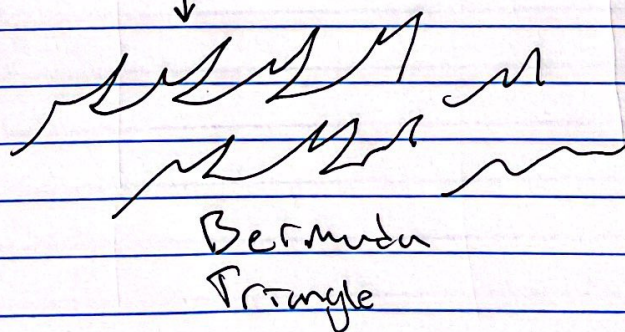 Bermuda
Triangle